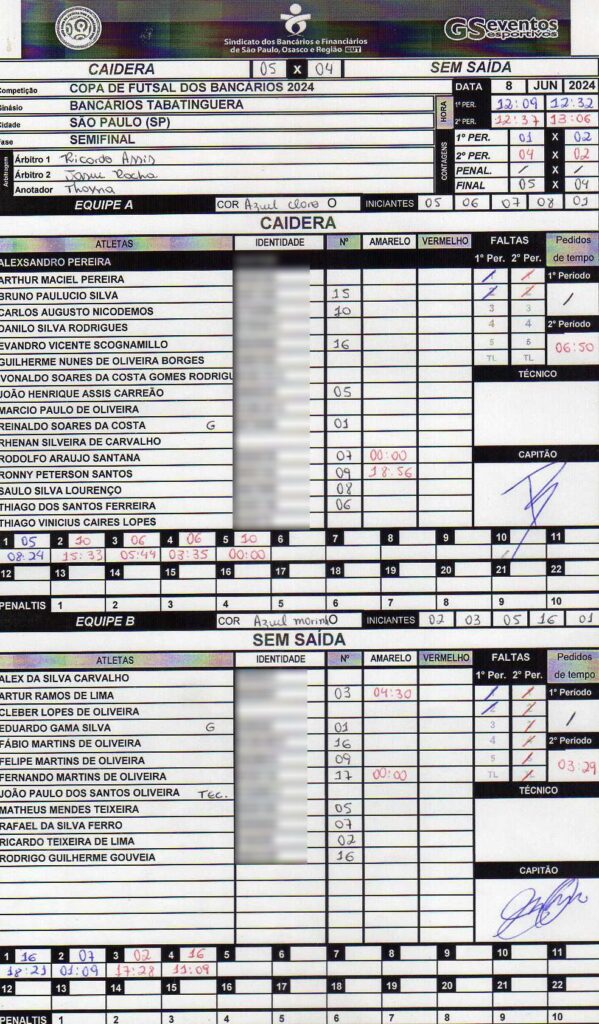 Sindicato dos Bancários e Financiários
de São Paulo, Osasco e Região CUT
GSeventos
esportivos
CAIDERA 05 X 04 SEM SAÍDA
Competição COPA DE FUTSAL DOS BANCÁRIOS 2024 DATA 8 JUN 2024
Ginásio BANCÁRIOS TABATINGUERA HORA 1º PER. 12:09 12:32
Cidade SÃO PAULO (SP) 2º PER. 12:37 13:06
Fase SEMIFINAL CONTAGENS 1º PER. 01 X 02
Arbitragem Árbitro 1 Ricardo Assis 2º PER. 04 X 02
Árbitro 2 Josue Rocha PENAL. / X /
Anotador Thayna FINAL 05 X 04
EQUIPE A COR Azul claro O INICIANTES 05 06 07 08 01
CAIDERA
ATLETAS IDENTIDADE Nº AMARELO VERMELHO FALTAS Pedidos de tempo
1º Per. 2º Per.
ALEXSANDRO PEREIRA
ARTHUR MACIEL PEREIRA 1 1 1º Período
BRUNO PAULUCIO SILVA 15 2 2 /
CARLOS AUGUSTO NICODEMOS 10 3 3
DANILO SILVA RODRIGUES 4 4 2º Período
EVANDRO VICENTE SCOGNAMILLO 16 5 5 06:50
GUILHERME NUNES DE OLIVEIRA BORGES TL TL
IVONALDO SOARES DA COSTA GOMES RODRIGU TÉCNICO
JOÃO HENRIQUE ASSIS CARREÃO 05
MARCIO PAULO DE OLIVEIRA
REINALDO SOARES DA COSTA G 01
RHENAN SILVEIRA DE CARVALHO
RODOLFO ARAUJO SANTANA 07 00:00 CAPITÃO
RONNY PETERSON SANTOS 09 18:56
SAULO SILVA LOURENÇO 08
THIAGO DOS SANTOS FERREIRA 06
THIAGO VINICIUS CAIRES LOPES
1 05 2 10 3 06 4 06 5 10 6 7 8 9 10 11
08:24 15:33 05:44 03:35 00:00
12 13 14 15 16 17 18 19 20 21 22
PENALTIS 1 2 3 4 5 6 7 8 9 10
EQUIPE B COR Azul marinho O INICIANTES 02 03 05 16 01
SEM SAÍDA
ATLETAS IDENTIDADE Nº AMARELO VERMELHO FALTAS Pedidos de tempo
1º Per. 2º Per.
ALEX DA SILVA CARVALHO
ARTUR RAMOS DE LIMA 03 04:30 1 1 1º Período
CLEBER LOPES DE OLIVEIRA 2 2 /
EDUARDO GAMA SILVA G 01 3 3
FÁBIO MARTINS DE OLIVEIRA 16 4 4 2º Período
FELIPE MARTINS DE OLIVEIRA 09 5 5 03:29
FERNANDO MARTINS DE OLIVEIRA 17 00:00 TL TL
JOÃO PAULO DOS SANTOS OLIVEIRA TEC. TÉCNICO
MATHEUS MENDES TEIXEIRA 05
RAFAEL DA SILVA FERRO 07
RICARDO TEIXEIRA DE LIMA 02
RODRIGO GUILHERME GOUVEIA 16
CAPITÃO
1 16 2 07 3 02 4 16 5 6 7 8 9 10 11
18:21 01:09 17:28 11:09
12 13 14 15 16 17 18 19 20 21 22
PENALTIS 1 2 3 4 5 6 7 8 9 10